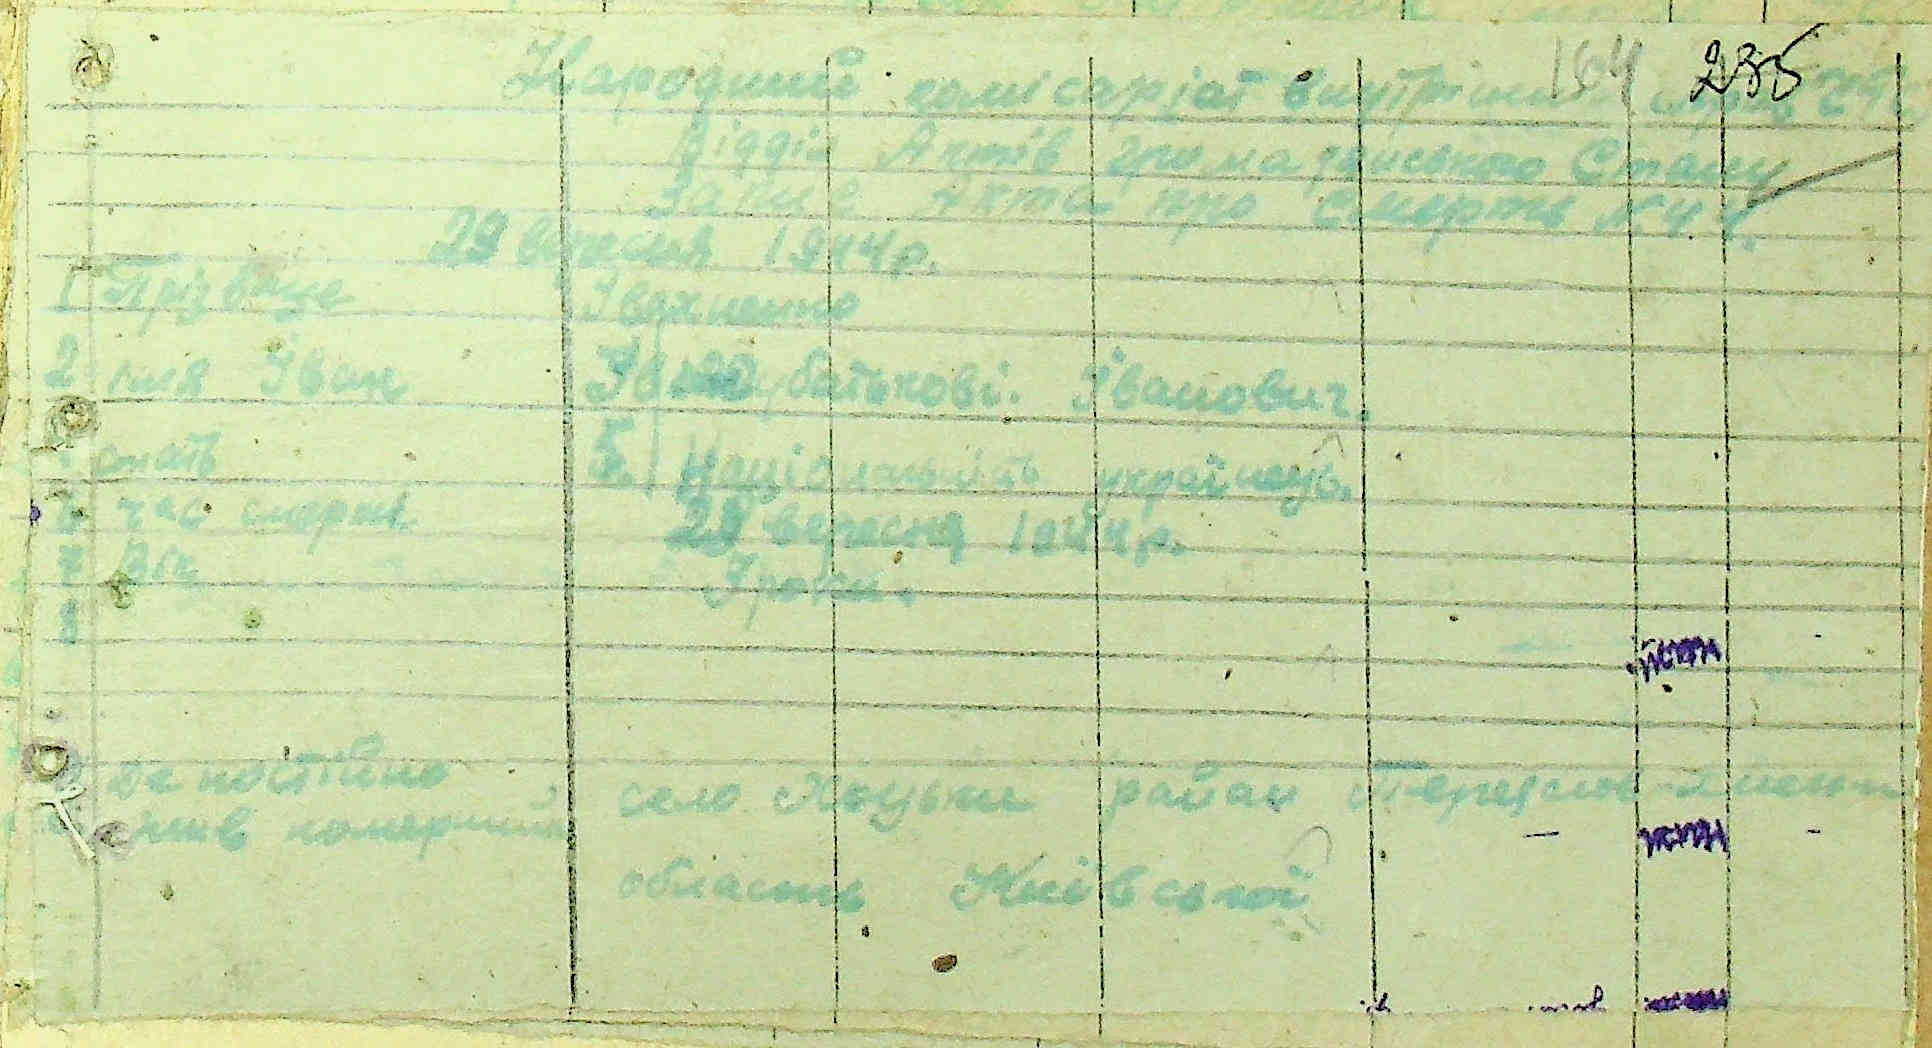 164 235
Народний комісаріат внутрішніх справ
Відділ Актів громадянського Стану
Запис Акта про Смерть N 44.
29 вересня 1944 р.
1 Прізвище Івахненко
2 імя Іван по батькові. Іванович.
стать 5. Національність українець.
6 час смерті 28 вересня 1944 р.
7 Вік 3 роки.
8
де постійно село Хоцьки район Переяслов-Хмельн
жив померший
область Київської